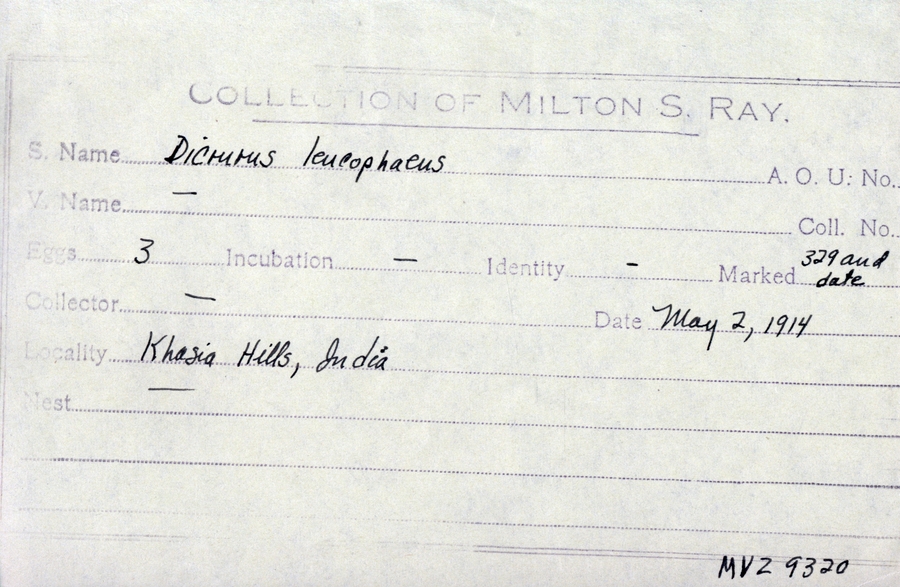 COLLECTION OF MILTON S. RAY.
S. Name Dicrurus leucophaeus A. O. U. No.
V. Name — Coll. No.
Eggs 3 Incubation — Identity - Marked 329 and date
Collector — Date May 2, 1914
Locality Khasia Hills, India
Nest —
MVZ 9320